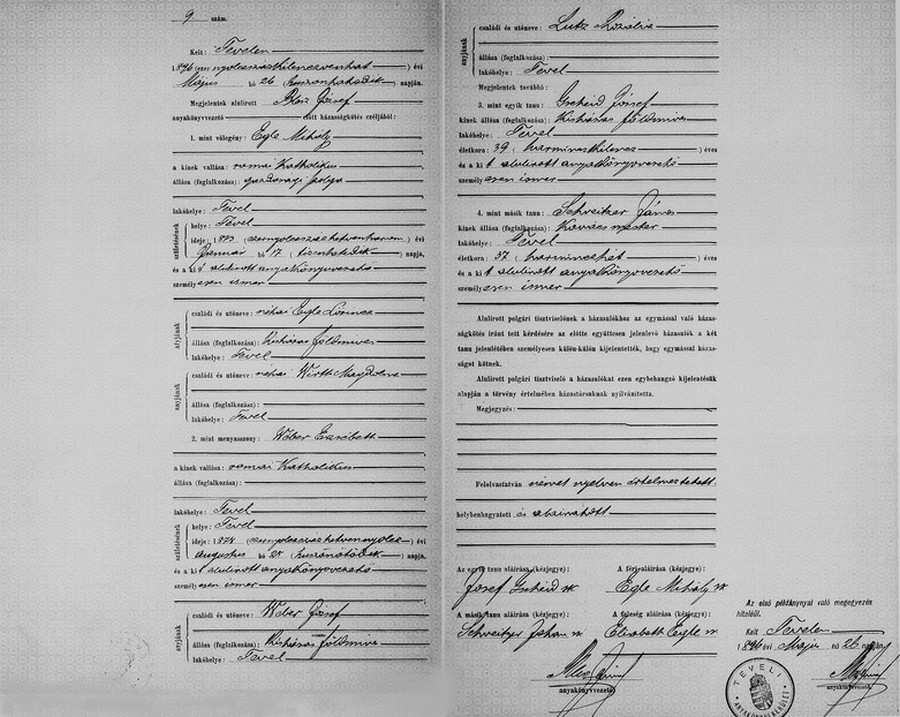 9 szám.
Kelt: Tevelen
1896 (ezer nyolcszázkilenczvenhat) évi
Május hó 26 (huszonhatodik) napján.
Megjelentek alulírott József
anyakönyvvezető előtt házasságkötés czéljából:
1. mint vőlegény: Egle Mihály
a kinek vallása: romai katholikus
állása (foglalkozása): gazdasági szolga
lakóhelye: Tevel
születésének
helye: Tevel
ideje: 1873 (ezernyolcszázhetvenharom) évi
Januar hó 17 (tizenhetedik) napja,
és a kit alulirott anyakönyvvezető
személyesen ismer
atyjának
családi és utóneve: néhai Egle Lőrincz
állása (foglalkozása): Kisházas földműves
lakóhelye: Tevel
anyjának
családi és utóneve: néhai Wirth Magdolna
állása (foglalkozása):
lakóhelye: Tevel
2. mint menyasszony: Wéber Erzsébeth
a kinek vallása: romai katholikus
állása (foglalkozása):
lakóhelye: Tevel
születésének
helye: Tevel
ideje: 1878 (ezernyolcszázhetvennyolcz) évi
augustus hó (huszonötödik) napja,
és a kit alulirott anyakönyvvezető
személyesen ismer
atyjának
családi és utóneve: Wéber József
állása (foglalkozása): Kisházas földműves
lakóhelye: Tevel
anyjának
családi és utóneve: Lutz Rozália
állása (foglalkozása):
lakóhelye: Tevel
Megjelentek továbbá:
3. mint egyik tanu: Gscheid József
kinek állása (foglalkozása): Kisházas földműves
lakóhelye: Tevel
életkora: 39 (harminczkilencz) éves
és a kit alulirott anyakönyvvezető
személyesen ismer
4. mint másik tanu: Schweitzer János
kinek állása (foglalkozása): Kovács mester
lakóhelye: Tevel
életkora: 37 (harminczhét) éves
és a kit alulirott anyakönyvvezető
személyesen ismer
Alulirott polgári tisztviselőnek a házasulókhoz az egymással való házas-
ságkötés iránt tett kérdésére az előtte együttesen jelenlevő házasulók a két
tanu jelenlétében személyesen külön-külön kijelentették, hogy egymással házas-
ságot kötnek.
Alulirott polgári tisztviselő a házasulókat ezen egybehangzó kijelentésük
alapján a törvény értelmében házastársaknak nyilvánította.
Megjegyzés:
Felolvastatván német nyelven értelmeztetett.
helybenhagyatott és aláiratott
Az egyik tanu aláírása (kézjegye):
A férj aláírása (kézjegye):
Josef Gscheid sk
Egle Mihály sk
A másik tanu aláírása (kézjegye):
A feleség aláírása (kézjegye):
Schweitzer Johan sk
Elisabeth Egle sk
anyakönyvvezető
Az első példánynyal való megegyezés
hiteléül.
Kelt Tevelen
1896 évi Május hó 26 napján
anyakönyvvezető
TEVELI
ANYAKÖNYVI KERÜLET